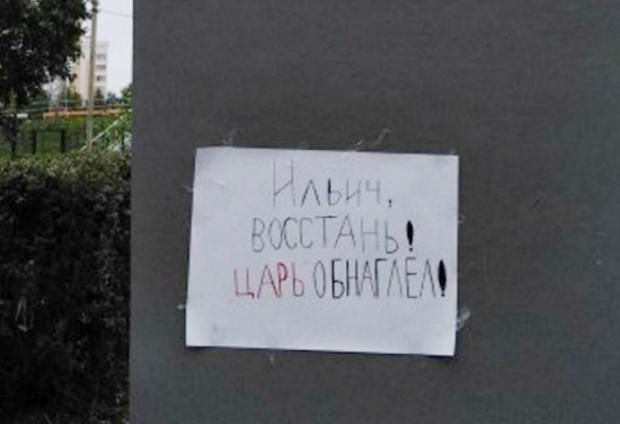 Ильич,
ВОССТАНЬ!
ЦАРЬ ОБНАГЛЕЛ!